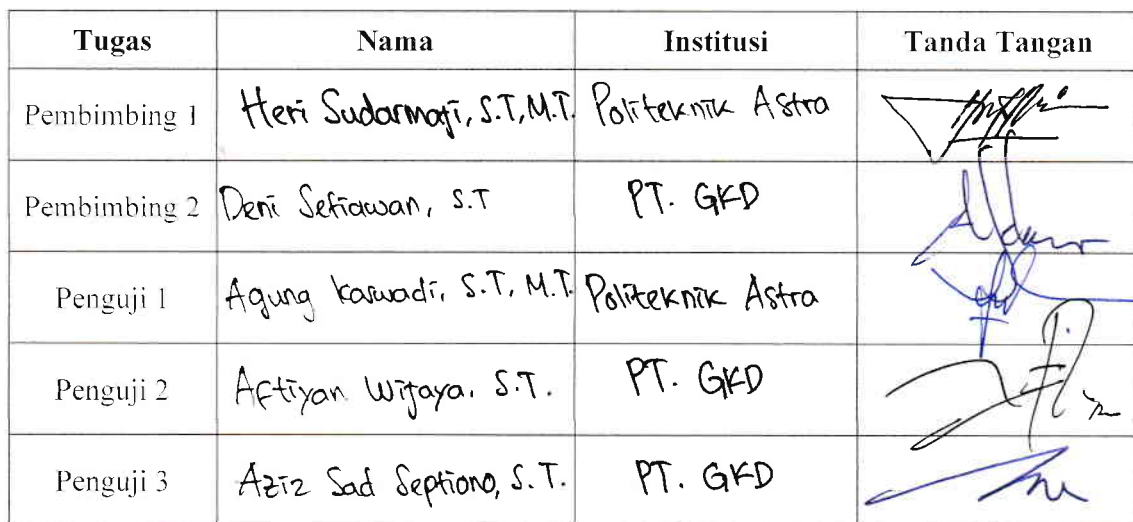 Tugas Nama Institusi Tanda Tangan
Pembimbing 1 Heri Sudarmaji, S.T, M.T. Politeknik Astra
Pembimbing 2 Deni Setiawan, S.T PT. GKD
Penguji 1 Agung Kaswadi, S.T, M.T. Politeknik Astra
Penguji 2 Aftiyan Wijaya, S.T. PT. GKD
Penguji 3 Aziz Sad Septiono, S.T. PT. GKD